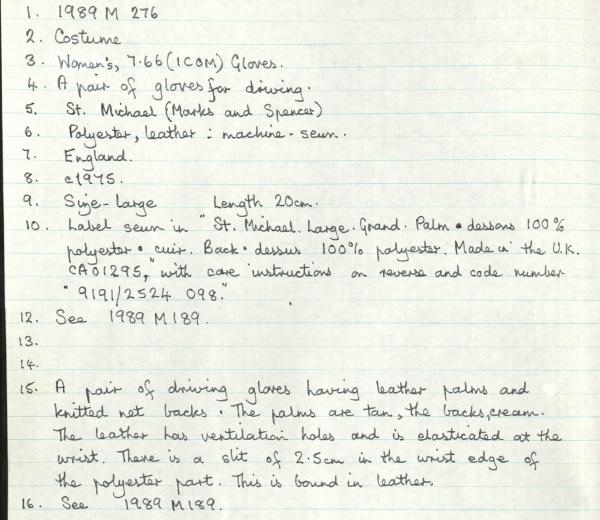 1. 1989 M 276
2. Costume
3. Women's, 7.66 (ICOM) Gloves.
4. A pair of gloves for driving.
5. St. Michael (Marks and Spencer)
6. Polyester, leather : machine-sewn.
7. England.
8. c1975.
9. Size-large Length 20cm.
10. Label sewn in "St. Michael. Large. Grand. Palm • dessons 100%
polyester • cuir. Back • dessus 100% polyester. Made in the U.K.
CA01295," with care instructions on reverse and code number
"9191/2524 098."
12. See 1989 M189.
13.
14.
15. A pair of driving gloves having leather palms and
knitted net backs. The palms are tan, the backs, cream.
The leather has ventilation holes and is elasticated at the
wrist. There is a slit of 2.5cm in the wrist edge of
the polyester part. This is bound in leather.
16. See 1989 M189.